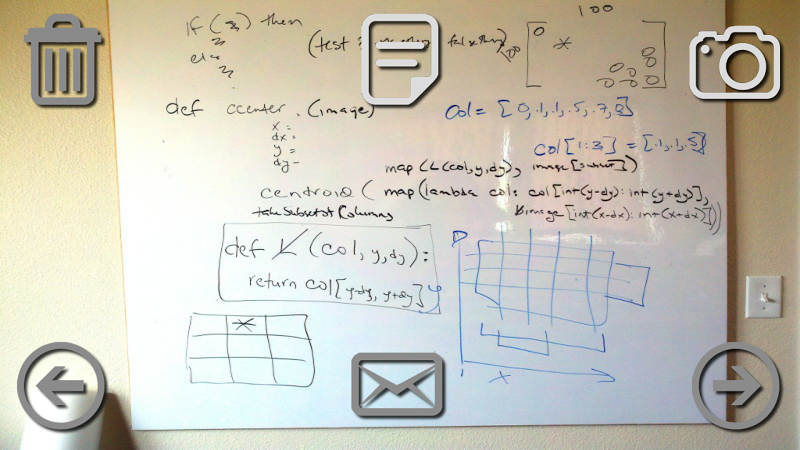 100
if (3) then
else
3
(test ?
100
def ccenter. (image)
x =
dx =
y =
dy =
Col = [0, .1, .1, .5, .7, 0]
Col[1:3] = [.1, .1, .5]
map (L(col, y, dy), image[subset])
centroid ( map(lambda col: col[int(y-dy): int(y+dy)],
take Subset of Columns
image[int(x-dx): int(x+dx)]))
def L (col, y, dy):
return col[y-dy, y+dy]
x